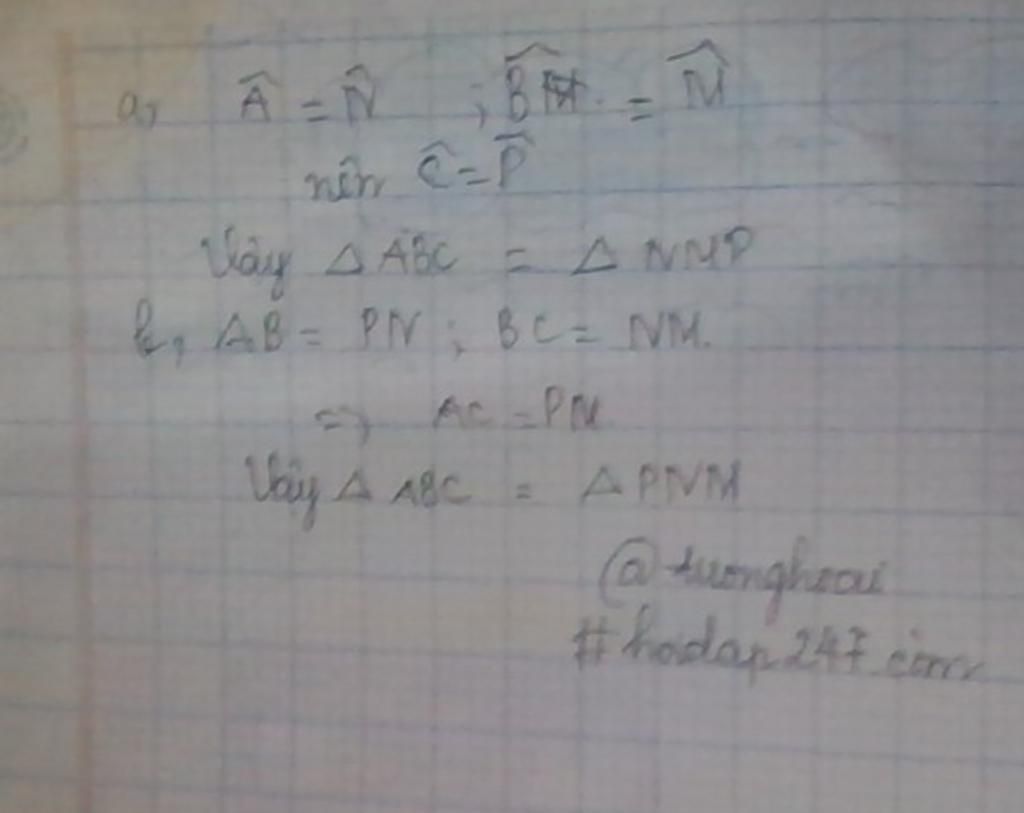 a, Â = N̂ ; B̂ = M̂
nên Ĉ = P̂
Vậy △ ABC = △ NMP
b, AB = PN ; BC = NM.
=> AC = PM
Vậy △ ABC = △ PNM
@tuonghoai
#hoidap247.com